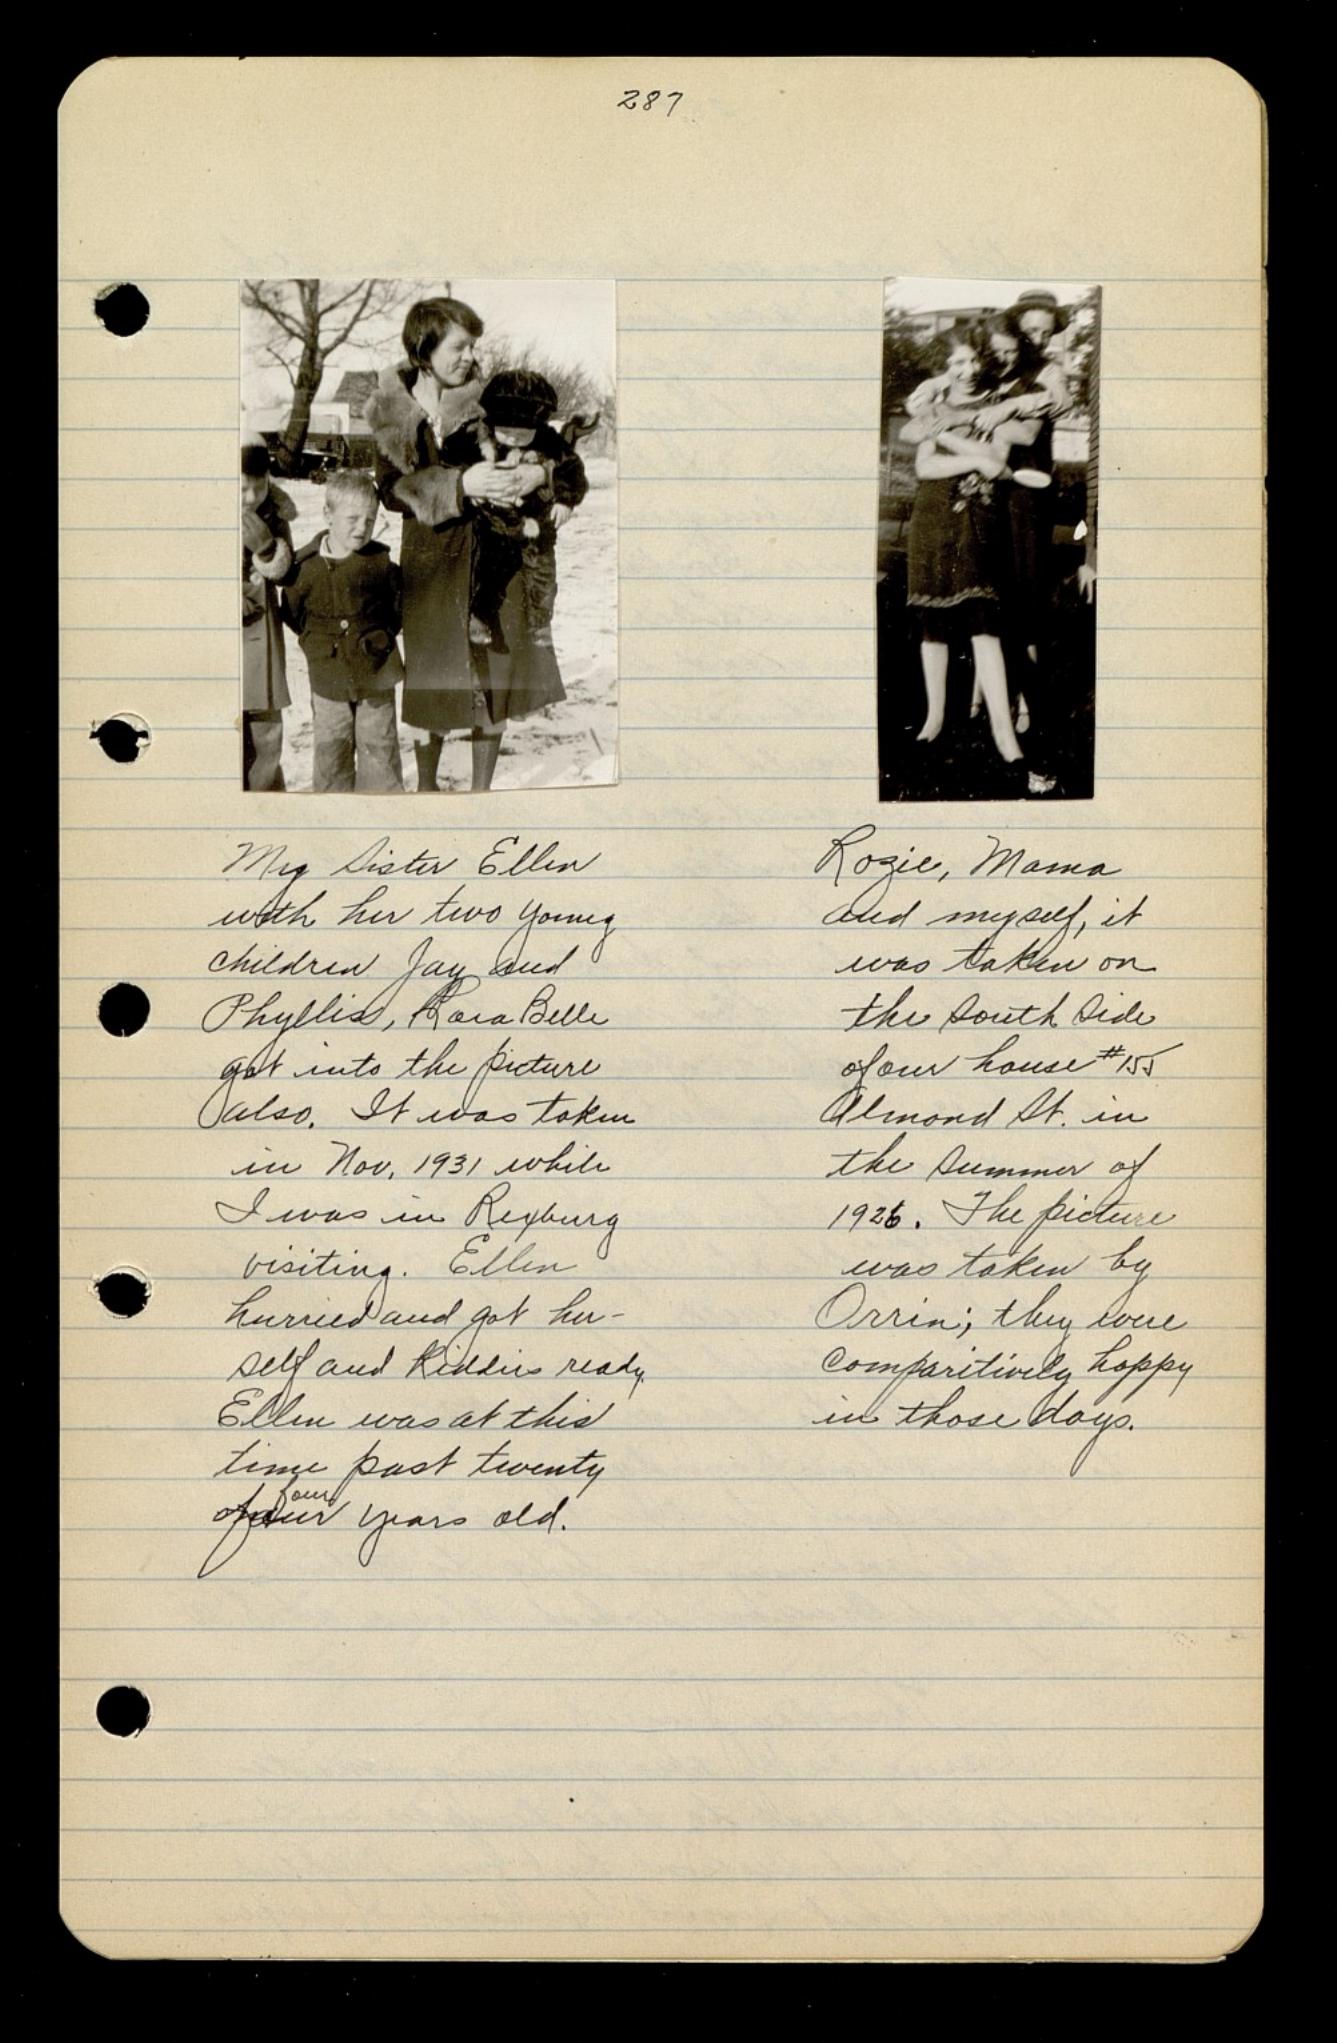 287
My Sister Ellen
with her two young
children Jay and
Phyllis, Rora Belle
got into the picture
also. It was taken
in Nov. 1931 while
I was in Rexburg
visiting. Ellen
hurried and got her-
self and Kiddies ready.
Ellen was at this
time past twenty
four years old.
Rozie, Mama
and myself, it
was taken on
the South Side
of our house #155
Almond St. in
the Summer of
1926. The picture
was taken by
Orrin; they were
comparitively happy
in those days.